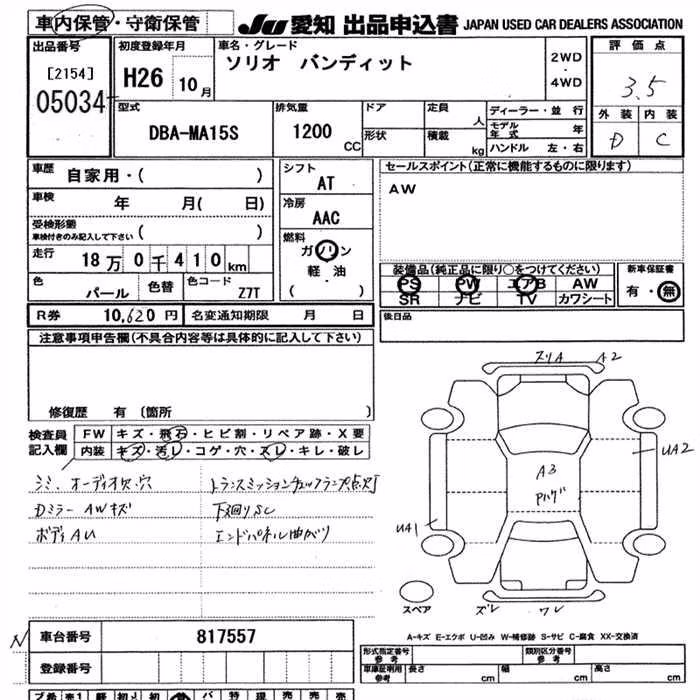 車内保管・守衛保管
JU 愛知 出品申込書 JAPAN USED CAR DEALERS ASSOCIATION
出品番号
[2154]
05034
初度登録年月
H26 10月
車名・グレード
ソリオ バンディット
2WD
・
4WD
評価点
3.5
外装 内装
D C
型式
DBA-MA15S
排気量
1200 CC
ドア
形状
定員 人
積載 kg
ディーラー・並行
モデル年式 年
ハンドル 左・右
車歴 自家用・( )
車検 年 月( 日)
受検形態
車検付きのみ記入して下さい ( )
走行 18万0千410km
色 パール 色替 色コード Z7T
シフト
AT
冷房
AAC
燃料
ガソリン
軽油
( )
セールスポイント(正常に機能するものに限ります)
AW
装備品(純正品に限り○をつけてください)
PS PW エアB AW
SR ナビ TV カワシート
新車保証書
有・無
R券 10,620円 名変通知期限 月 日
後日品
注意事項申告欄(不具合内容等は具体的に記入して下さい)
修復歴 有 〔箇所 〕
検査員記入欄
FW キズ・飛石・ヒビ割・リペア跡・X要
内装 キズ・汚レ・コゲ・穴・スレ・キレ・破レ
シミ、オーディオ欠、穴
Dミラー AWキズ
ボディAU
トランスミッションチェックランプ点灯
下廻りSC
エンドパネル曲がり
スリA A2
UA2
A3
Pハゲ
UA1
スペア
ズレ ワレ
A-キズ E-エクボ U-凹み W-補修跡 S-サビ C-腐食 XX-交換済
車台番号 817557
登録番号
形式指定番号
参考
類別区分番号
参考
車庫証明用
参考
長さ cm 幅 cm 高さ cm